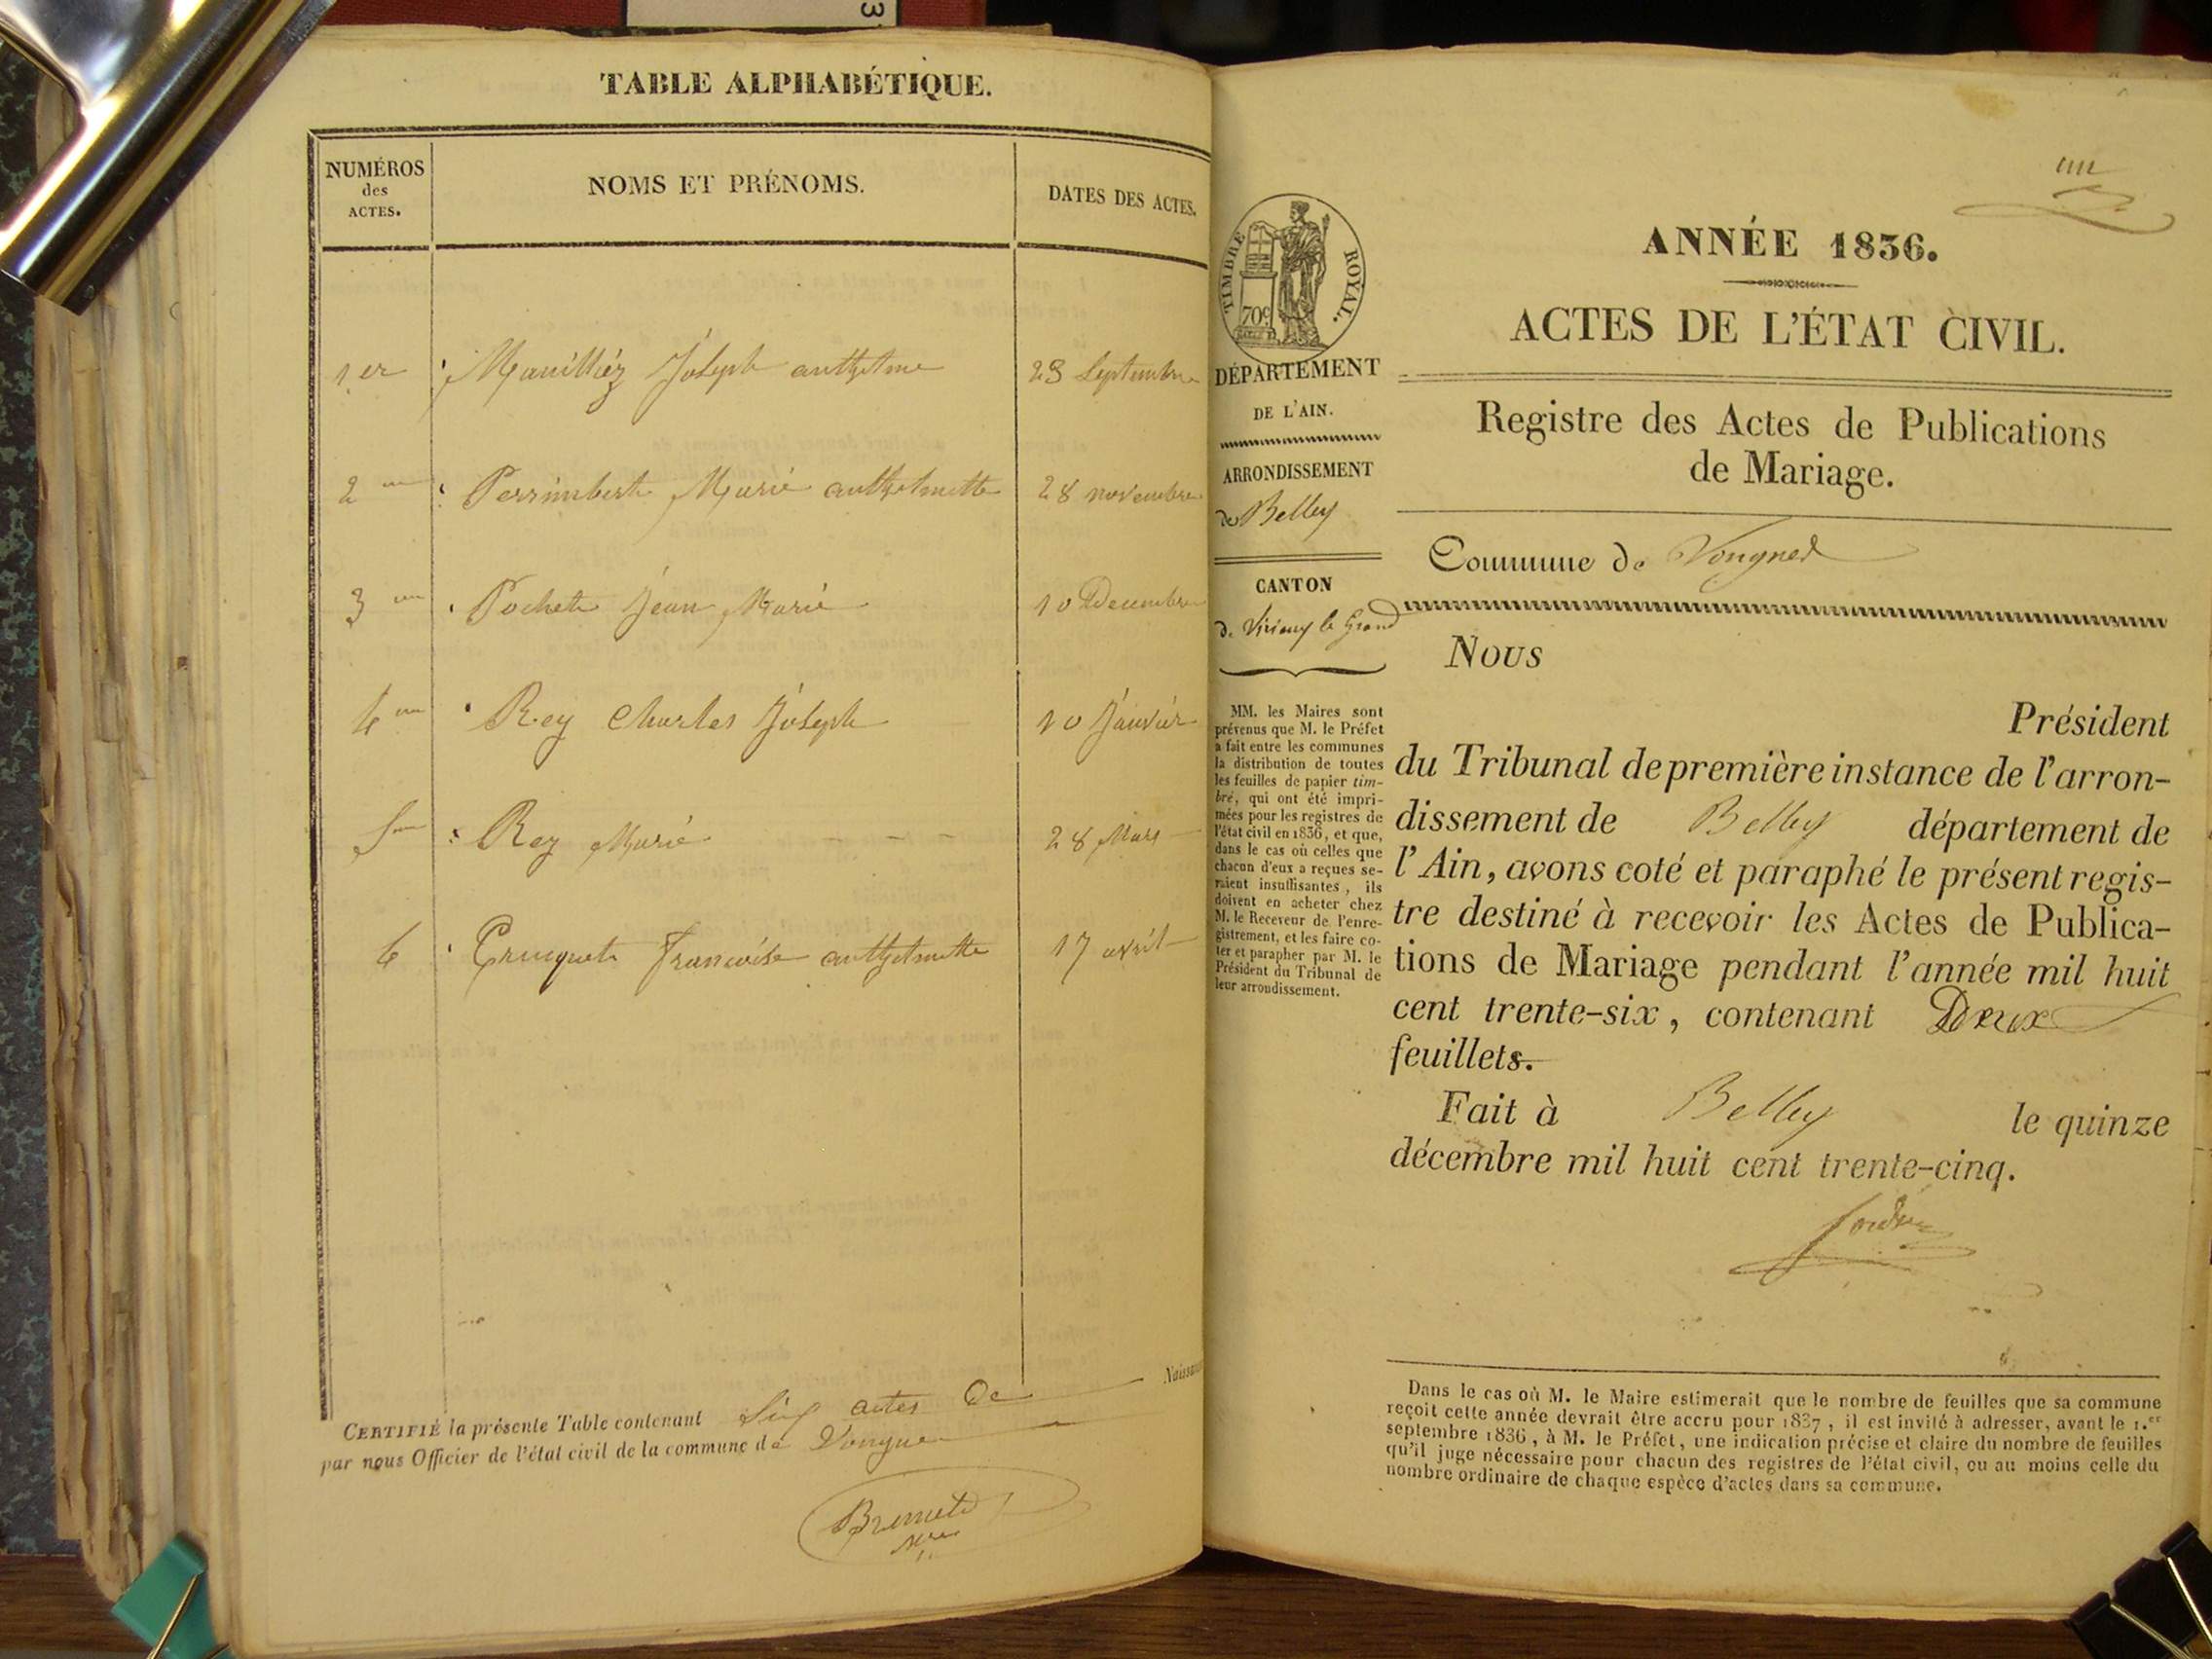 TABLE ALPHABÉTIQUE.
NUMÉROS
des
ACTES.
NOMS ET PRÉNOMS.
DATES DES ACTES.
1er Joseph anthelme 23 Septembre
2me Perrimbert Marie anthelmette 28 novembre
3me Pochet Jean Marie 10 Decembre
4me Rey Charles Joseph 10 Janvier
5me Rey Marie 28 Mars
6 Francoise anthelmette 17 avril
CERTIFIÉ la présente Table contenant Six actes De
par nous Officier de l'état civil de la commune de Vongnes
TIMBRE ROYAL.
70c
DÉPARTEMENT
DE L'AIN.
ARRONDISSEMENT
de Belley
CANTON
de Virieu le Grand
MM. les Maires sont
prévenus que M. le Préfet
a fait entre les communes
la distribution de toutes
les feuilles de papier tim-
bré, qui ont été impri-
mées pour les registres de
l'état civil en 1836, et que,
dans le cas où celles que
chacun d'eux a reçues se-
raient insuffisantes, ils
doivent en acheter chez
M. le Receveur de l'enre-
gistrement, et les faire co-
ter et parapher par M. le
Président du Tribunal de
leur arrondissement.
ANNÉE 1836.
ACTES DE L'ÉTAT CIVIL.
Registre des Actes de Publications
de Mariage.
Commune de Vongnes
Nous
Président
du Tribunal de première instance de l'arron-
dissement de Belley département de
l'Ain, avons coté et paraphé le présent regis-
tre destiné à recevoir les Actes de Publica-
tions de Mariage pendant l'année mil huit
cent trente-six, contenant Deux
feuillets.
Fait à Belley le quinze
décembre mil huit cent trente-cinq.
Dans le cas où M. le Maire estimerait que le nombre de feuilles que sa commune
reçoit cette année devrait être accru pour 1837, il est invité à adresser, avant le 1.er
septembre 1836, à M. le Préfet, une indication précise et claire du nombre de feuilles
qu'il juge nécessaire pour chacun des registres de l'état civil, ou au moins celle du
nombre ordinaire de chaque espèce d'actes dans sa commune.